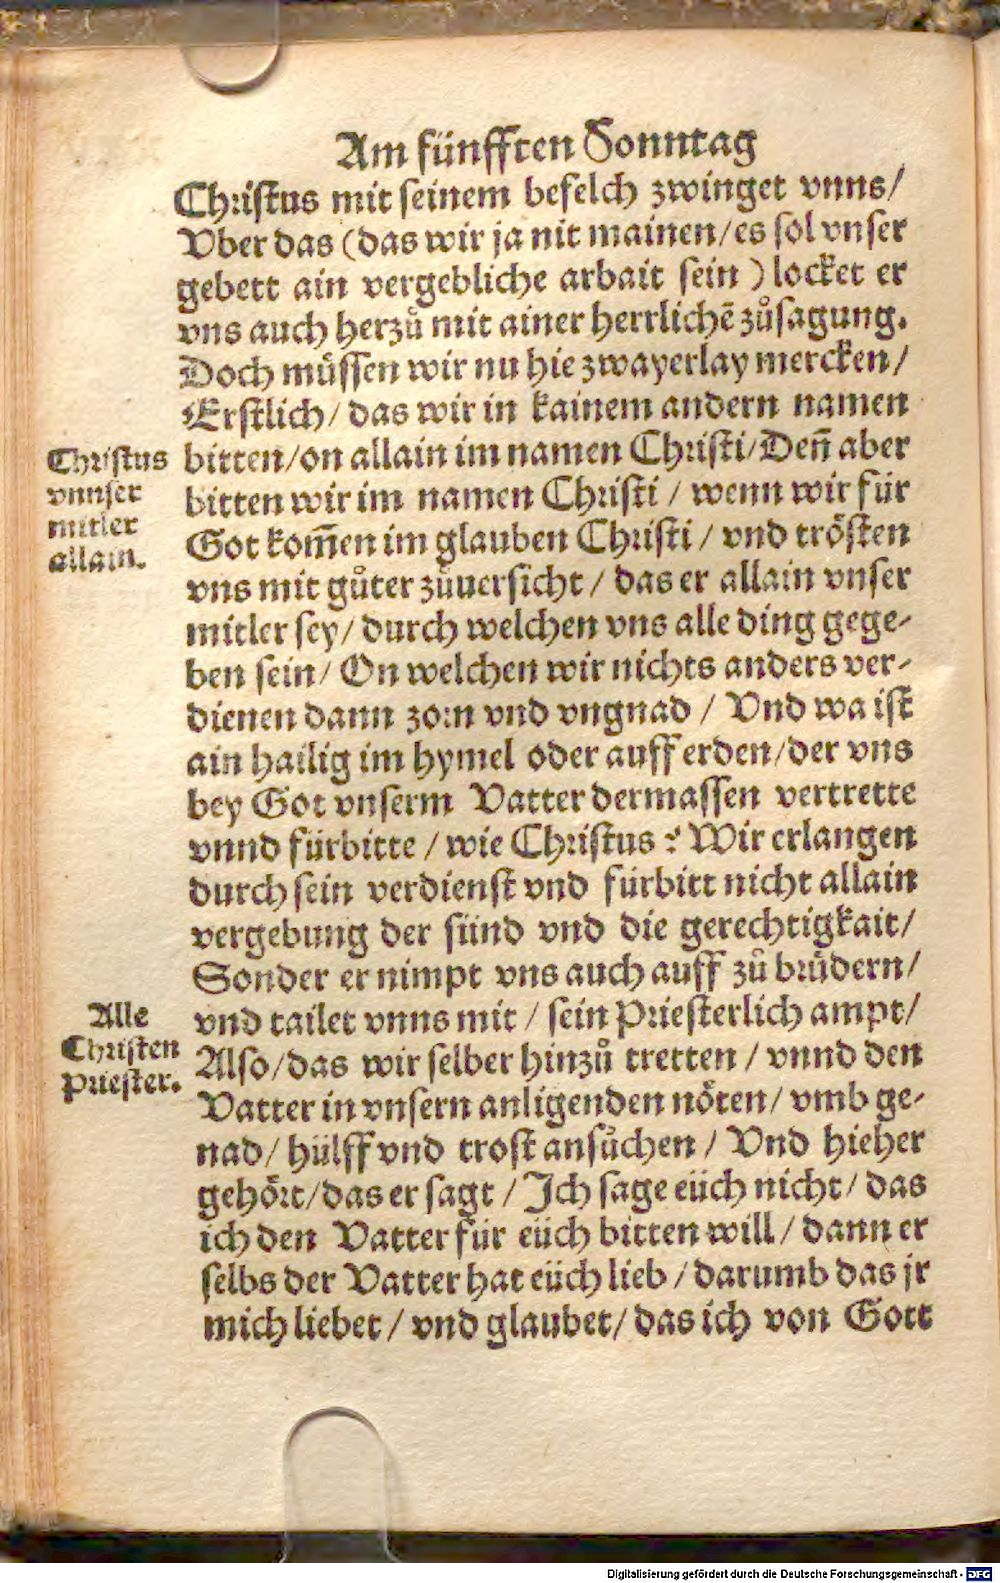 Am fünfften Sonntag
Christus mit seinem befelch zwinget vnns/
Vber das (das wir ja nit mainen/es sol vnser
gebett ain vergebliche arbait sein) locket er
vns auch herzů mit ainer herrlichẽ zůsagung.
Doch müssen wir nu hie zwayerlay mercken/
Erstlich/ das wir in kainem andern namen
bitten/on allain im namen Christi/Deñ aber
bitten wir im namen Christi / wenn wir für
Got kom̃en im glauben Christi / vnd trösten
vns mit gůter zůuersicht / das er allain vnser
mitler sey/ durch welchen vns alle ding gege-
ben sein/ On welchen wir nichts anders ver-
dienen dann zorn vnd vngnad / Vnd wa ist
ain hailig im hymel oder auff erden/der vns
bey Got vnserm Vatter dermassen vertrette
vnnd fürbitte / wie Christus? Wir erlangen
durch sein verdienst vnd fürbitt nicht allain
vergebung der sünd vnd die gerechtigkait/
Sonder er nimpt vns auch auff zů brüdern/
vnd tailet vnns mit / sein Priesterlich ampt/
Also/das wir selber hinzů tretten / vnnd den
Vatter in vnsern anligenden nöten/ vmb ge-
nad/ hülff vnd trost ansůchen / Vnd hieher
gehört/das er sagt / Ich sage eüch nicht/ das
ich den Vatter für eüch bitten will/ dann er
selbs der Vatter hat eüch lieb / darumb das jr
mich liebet / vnd glaubet/ das ich von Gott
Christus
vnnser
mitler
allain.
Alle
Christen
Priester.
Digitalisierung gefördert durch die Deutsche Forschungsgemeinschaft - DFG